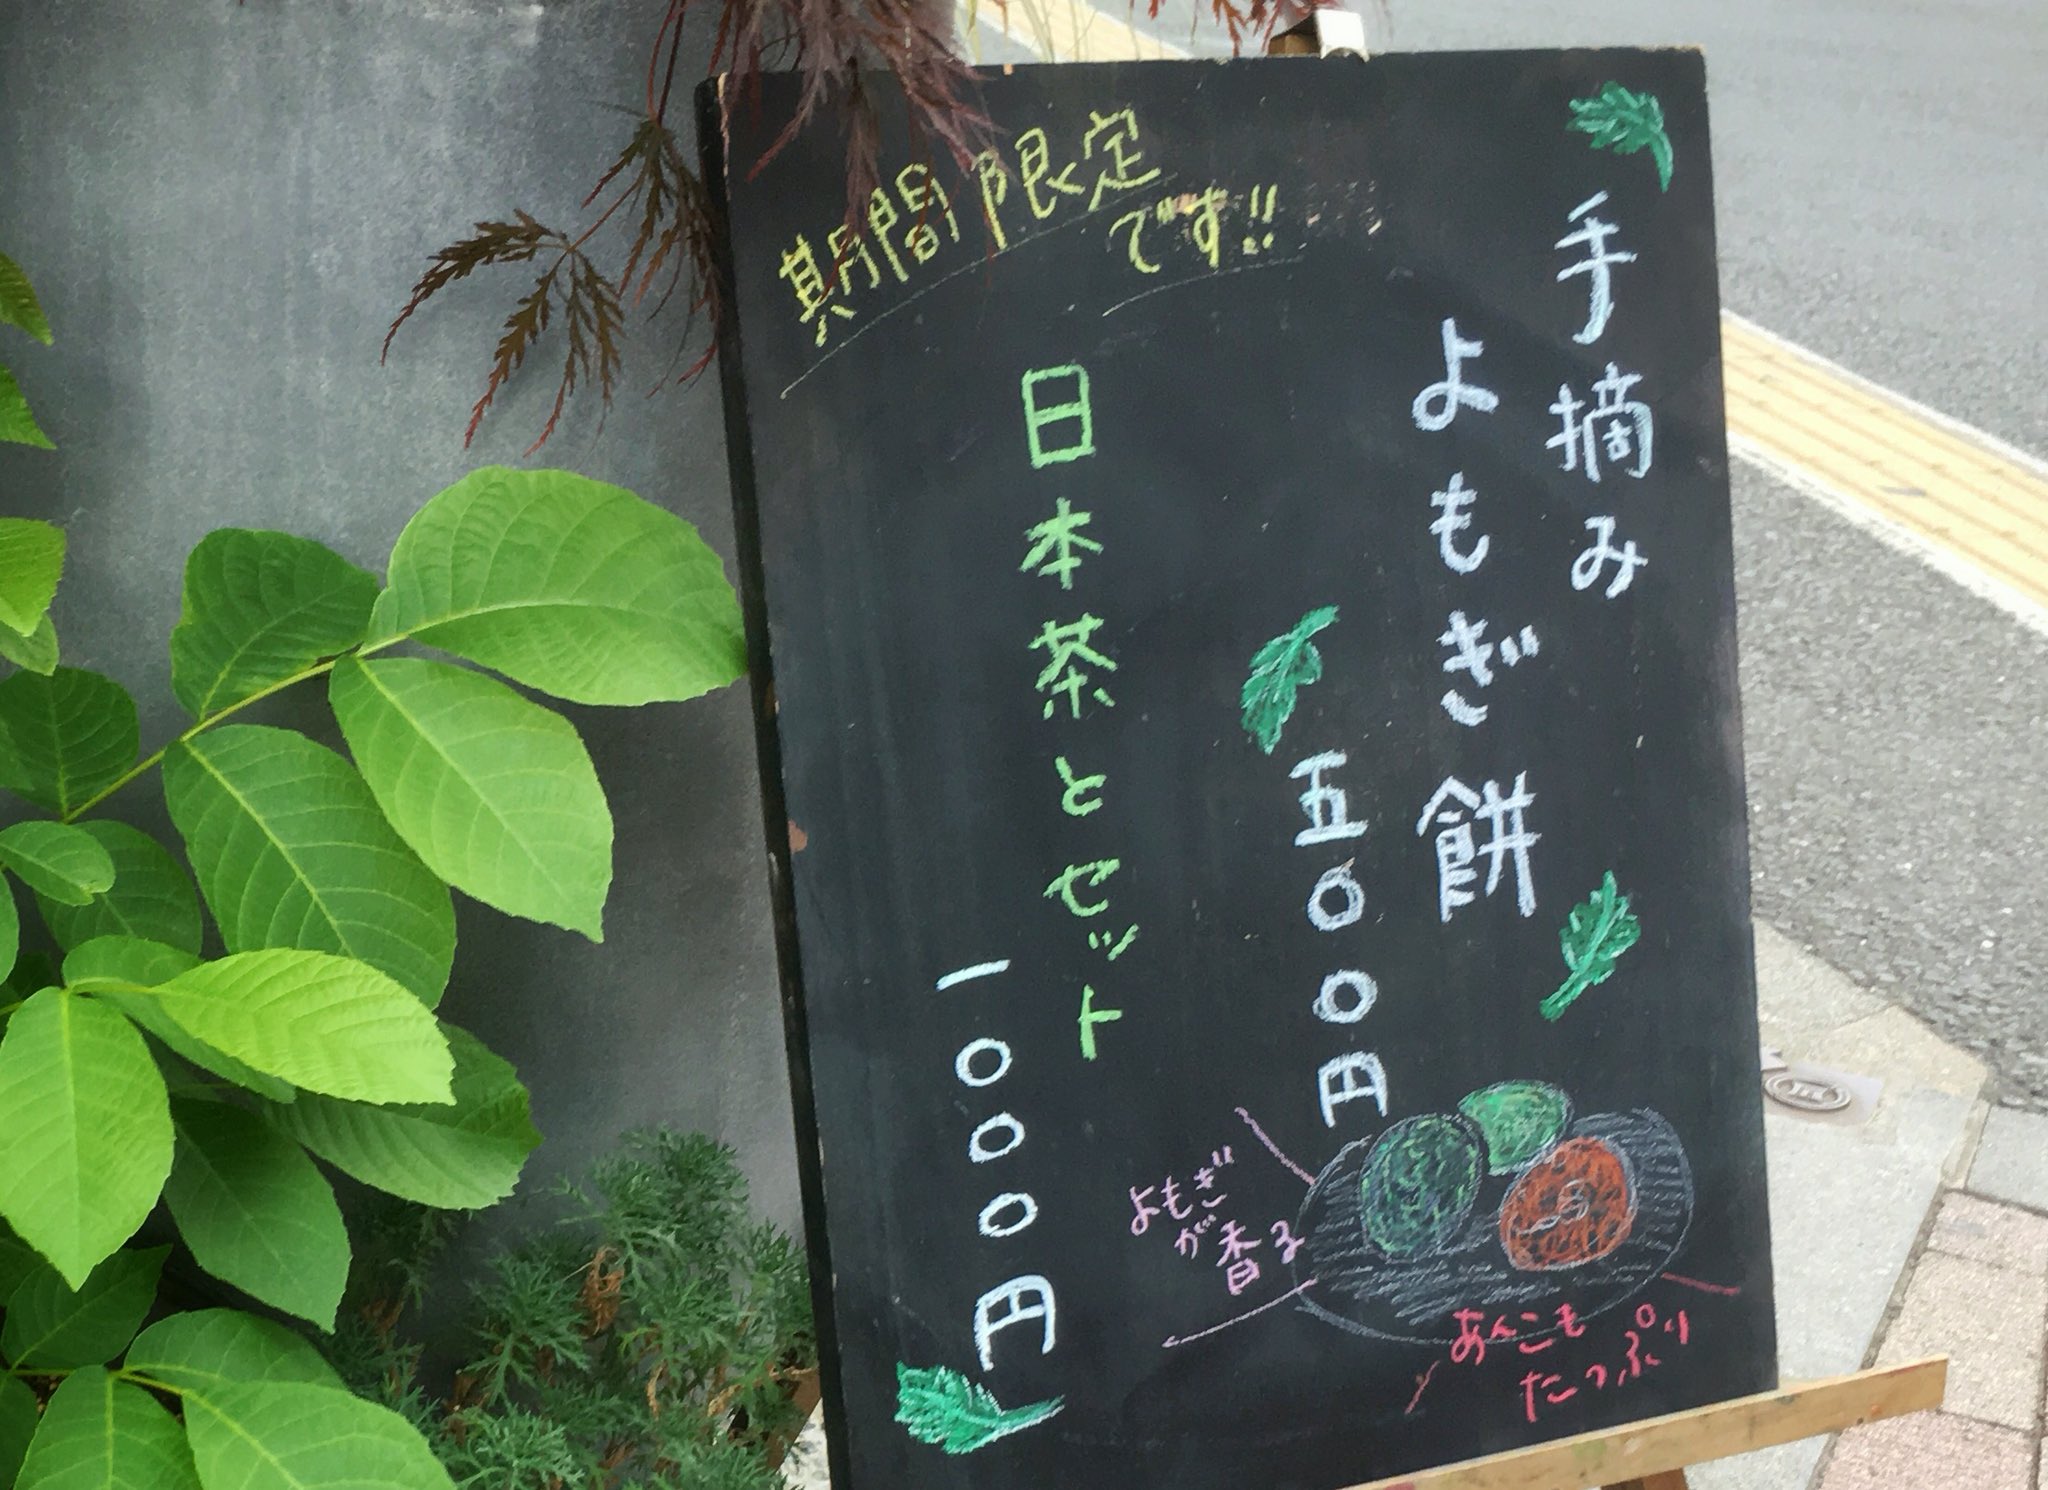 期間限定
です!!
手摘み
よもぎ餅
五〇〇円
日本茶とセット
一〇〇〇円
よもぎ
が香る
あんこも
たっぷり